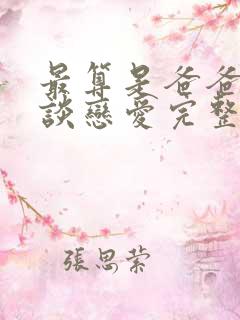 最算是爸爸
談戀愛完整
張思縈